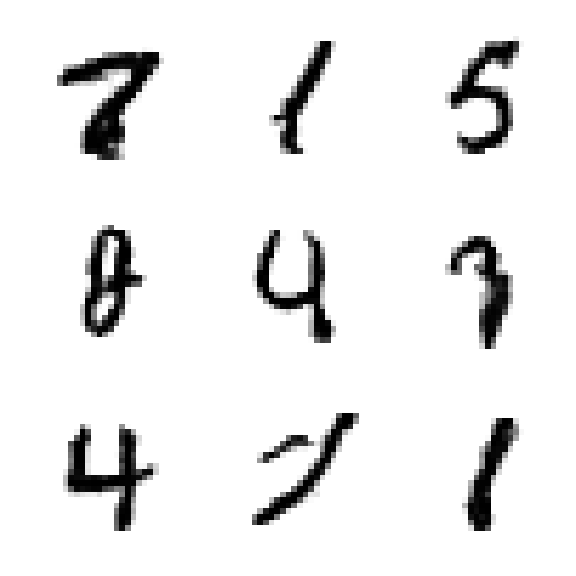 7 1 5
8 4 3
4 7 1